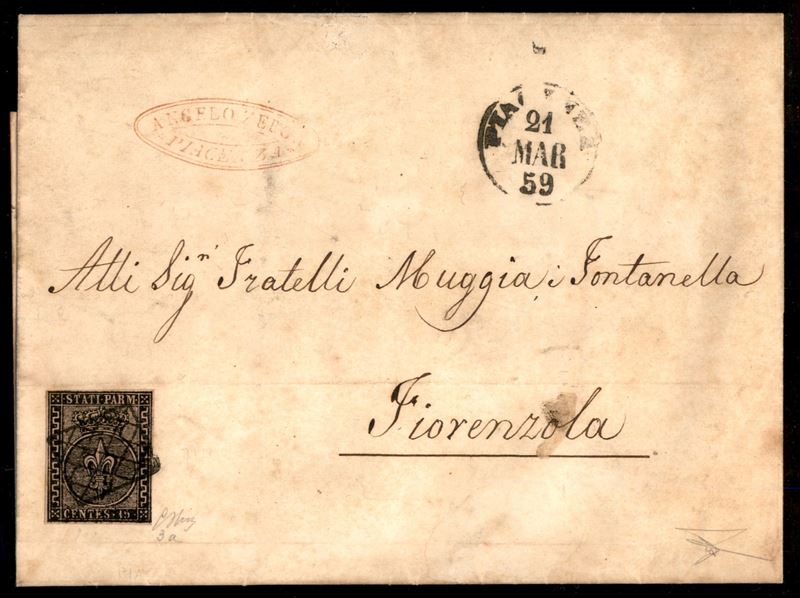 ANGELO
PIACENZA
PIACENZA
21
MAR
59
Alli Sigri Fratelli Muggia, i Fontanella
Fiorenzola
STATI·PARM
CENTES·15
3a